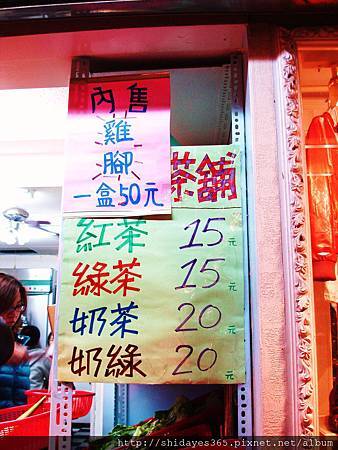 內售
雞
腳
一盒50元
茶舖
紅茶 15元
綠茶 15元
奶茶 20元
奶綠 20元
http://shidayes365.pixnet.net/album